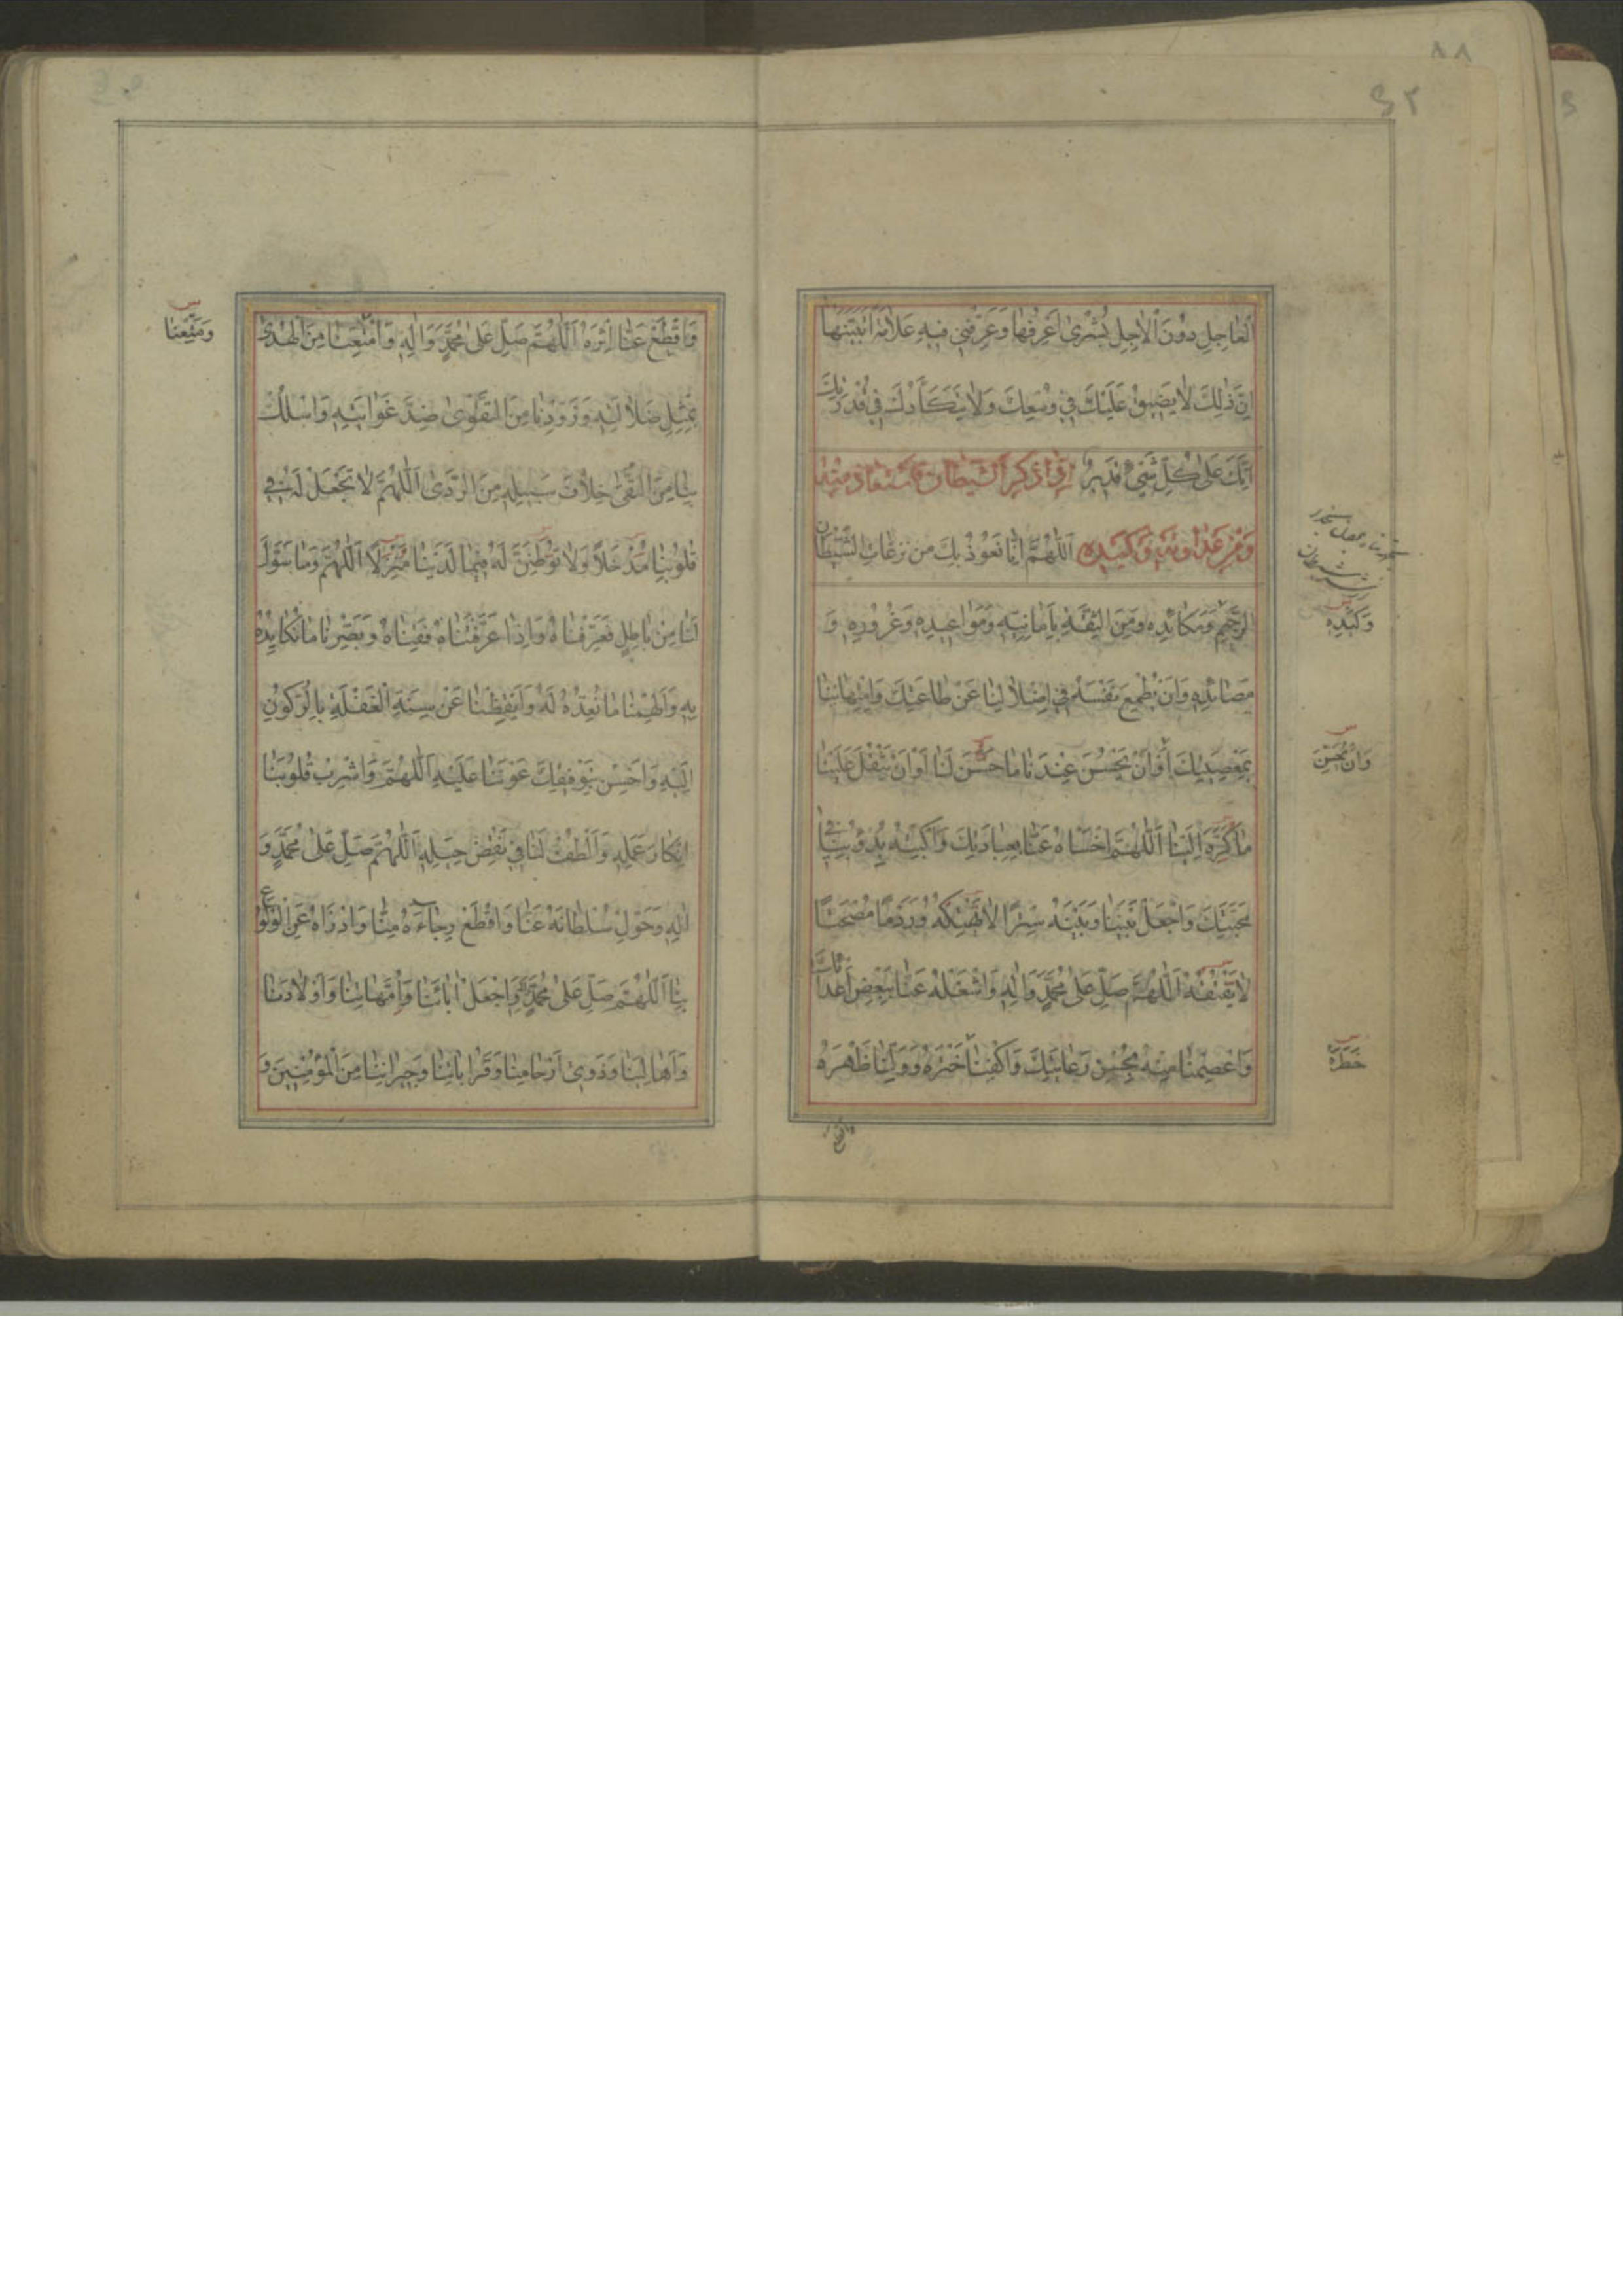 ٤٢
الْعَاجِلِ دُوْنَ الْاٰجِلِ بُشْرٰى اَعْرِفُهَا وَعَرِّفْنِي فِيهِ عَلَامَةً اَتَبَيَّنُهَا
اِنَّ ذٰلِكَ لَا يَضِيقُ عَلَيْكَ فِي وُسْعِكَ وَلَا يَتَكَأَّدُكَ فِي قُدْرَتِكَ
اِنَّكَ عَلٰى كُلِّ شَيْءٍ قَدِيرٌ اِذَا ذُكِرَ الشَّيْطَانُ فَاسْتَعَاذَ مِنْهُ
وَمِنْ عَدَاوَتِهِ وَكَيْدِهِ اَللّٰهُمَّ اِنَّا نَعُوْذُ بِكَ مِنْ نَزَغَاتِ الشَّيْطَانِ
الرَّجِيمِ وَمَكَائِدِهِ وَمِنَ الثِّقَةِ بِاَمَانِيِّهِ وَمَوَاعِيدِهِ وَغُرُوْرِهِ وَ
مَصَائِدِهِ وَاَنْ يُطْمِعَ نَفْسَهُ فِي اِضْلَالِنَا عَنْ طَاعَتِكَ وَامْتِهَانِنَا
بِمَعْصِيَتِكَ اَوْ اَنْ يَحْسُنَ عِنْدَنَا مَا حَسَّنَ لَنَا اَوْ اَنْ يَثْقُلَ عَلَيْنَا
مَا كَرَّهَ اِلَيْنَا اَللّٰهُمَّ اخْسَأْهُ عَنَّا بِعِبَادَتِكَ وَاكْبِتْهُ بِدُؤُوْبِنَا فِي
مَحَبَّتِكَ وَاجْعَلْ بَيْنَنَا وَبَيْنَهُ سِتْرًا لَا يَهْتِكُهُ وَرَدْمًا مُصْمَتًا
لَا يَفْتُقُهُ اَللّٰهُمَّ صَلِّ عَلٰى مُحَمَّدٍ وَاٰلِهِ وَاشْغَلْهُ عَنَّا بِبَعْضِ اَعْدَائِكَ
وَاعْصِمْنَا مِنْهُ بِحُسْنِ رِعَايَتِكَ وَاكْفِنَا خَتْرَهُ وَوَلِّنَا ظَهْرَهُ
وَكَيْدِهِ
وَاَنْ يُحَسِّنَ
خَطَرَهُ
وَاقْطَعْ
وَاقْطَعْ عَنَّا اِثْرَهُ اَللّٰهُمَّ صَلِّ عَلٰى مُحَمَّدٍ وَاٰلِهِ وَاَمْتِعْنَا مِنَ الْهُدٰى
بِمِثْلِ ضَلَالَتِهِ وَزَوِّدْنَا مِنَ التَّقْوٰى ضِدَّ غَوَايَتِهِ وَاسْلُكْ
بِنَا مِنَ التُّقٰى خِلَافَ سَبِيلِهِ مِنَ الرَّدٰى اَللّٰهُمَّ لَا تَجْعَلْ لَهُ فِي
قُلُوْبِنَا مَدْخَلًا وَلَا تُوَطِّنَنَّ لَهُ فِيمَا لَدَيْنَا مَنْزِلًا اَللّٰهُمَّ وَمَا سَوَّلَ
لَنَا مِنْ بَاطِلٍ فَعَرِّفْنَاهُ وَاِذَا عَرَّفْتَنَاهُ فَقِنَاهُ وَبَصِّرْنَا مَا نُكَايِدُهُ
بِهِ وَاَلْهِمْنَا مَا نُعِدُّهُ لَهُ وَاَيْقِظْنَا عَنْ سِنَةِ الْغَفْلَةِ بِالرُّكُوْنِ
اِلَيْهِ وَاَحْسِنْ بِتَوْفِيقِكَ عَوْنَنَا عَلَيْهِ اَللّٰهُمَّ وَاَشْرِبْ قُلُوْبَنَا
اِنْكَارَ عَمَلِهِ وَالْطُفْ لَنَا فِي نَقْضِ حِيَلِهِ اَللّٰهُمَّ صَلِّ عَلٰى مُحَمَّدٍ وَ
اٰلِهِ وَحَوِّلْ سُلْطَانَهُ عَنَّا وَاقْطَعْ رَجَاءَهُ مِنَّا وَادْرَأْهُ عَنِ الْوُلُوْعِ
بِنَا اَللّٰهُمَّ صَلِّ عَلٰى مُحَمَّدٍ وَاٰلِهِ وَاجْعَلْ اٰبَائَنَا وَاُمَّهَاتِنَا وَاَوْلَادَنَا
وَاَهَالِيَنَا وَذَوِي اَرْحَامِنَا وَقَرَابَاتِنَا وَجِيرَانَنَا مِنَ الْمُؤْمِنِينَ وَ
وَمَتِّعْنَا